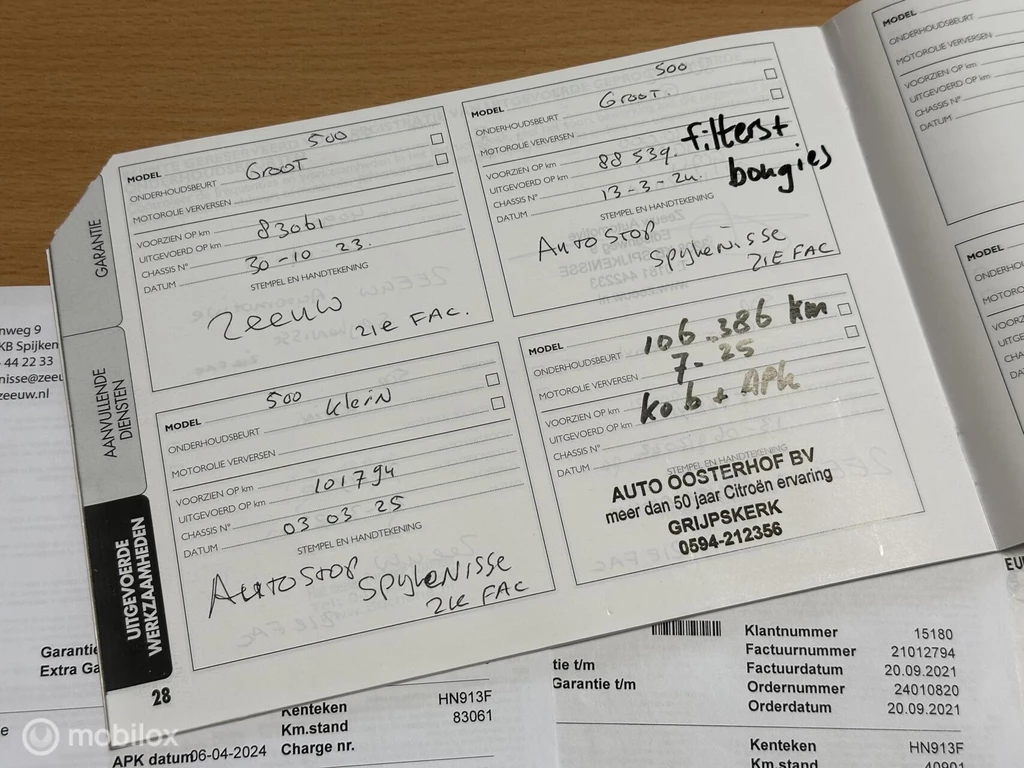 GARANTIE
AANVULLENDE
DIENSTEN
UITGEVOERDE
WERKZAAMHEDEN
28
MODEL 500
ONDERHOUDSBEURT GROOT
MOTOROLIE VERVERSEN
VOORZIEN OP km
UITGEVOERD OP km 83061
CHASSIS N°
DATUM 30-10 23.
STEMPEL EN HANDTEKENING
Zeeuw
ZIE FAC.
MODEL 500
ONDERHOUDSBEURT GROOT.
MOTOROLIE VERVERSEN
VOORZIEN OP km
UITGEVOERD OP km 88539.
CHASSIS N°
DATUM 13-3-24.
filterst
bougies
STEMPEL EN HANDTEKENING
AUTOSTOP
SPYKENISSE
ZIE FAC
MODEL 500
ONDERHOUDSBEURT KLEIN
MOTOROLIE VERVERSEN
VOORZIEN OP km
UITGEVOERD OP km 101794
CHASSIS N°
DATUM 03 03 25
STEMPEL EN HANDTEKENING
AUTOSTOP SPYKENISSE
ZIE FAC
MODEL
ONDERHOUDSBEURT 106.386 km
MOTOROLIE VERVERSEN 7-25
VOORZIEN OP km
UITGEVOERD OP km kob + APk
CHASSIS N°
DATUM
STEMPEL EN HANDTEKENING
AUTO OOSTERHOF BV
meer dan 50 jaar Citroën ervaring
GRIJPSKERK
0594-212356
MODEL
ONDERHOUDSBEURT
MOTOROLIE VERVERSEN
VOORZIEN OP km
UITGEVOERD OP km
CHASSIS N°
DATUM
MODEL
nweg 9
KB Spijken
44 22 33
nisse@zeeu
zeeuw.nl
Garantie
Extra Ga
Kenteken HN913F
Km.stand 83061
APK datum 06-04-2024 Charge nr.
tie t/m
Garantie t/m
Klantnummer 15180
Factuurnummer 21012794
Factuurdatum 20.09.2021
Ordernummer 24010820
Orderdatum 20.09.2021
Kenteken HN913F
Km.stand 40901
mobilox